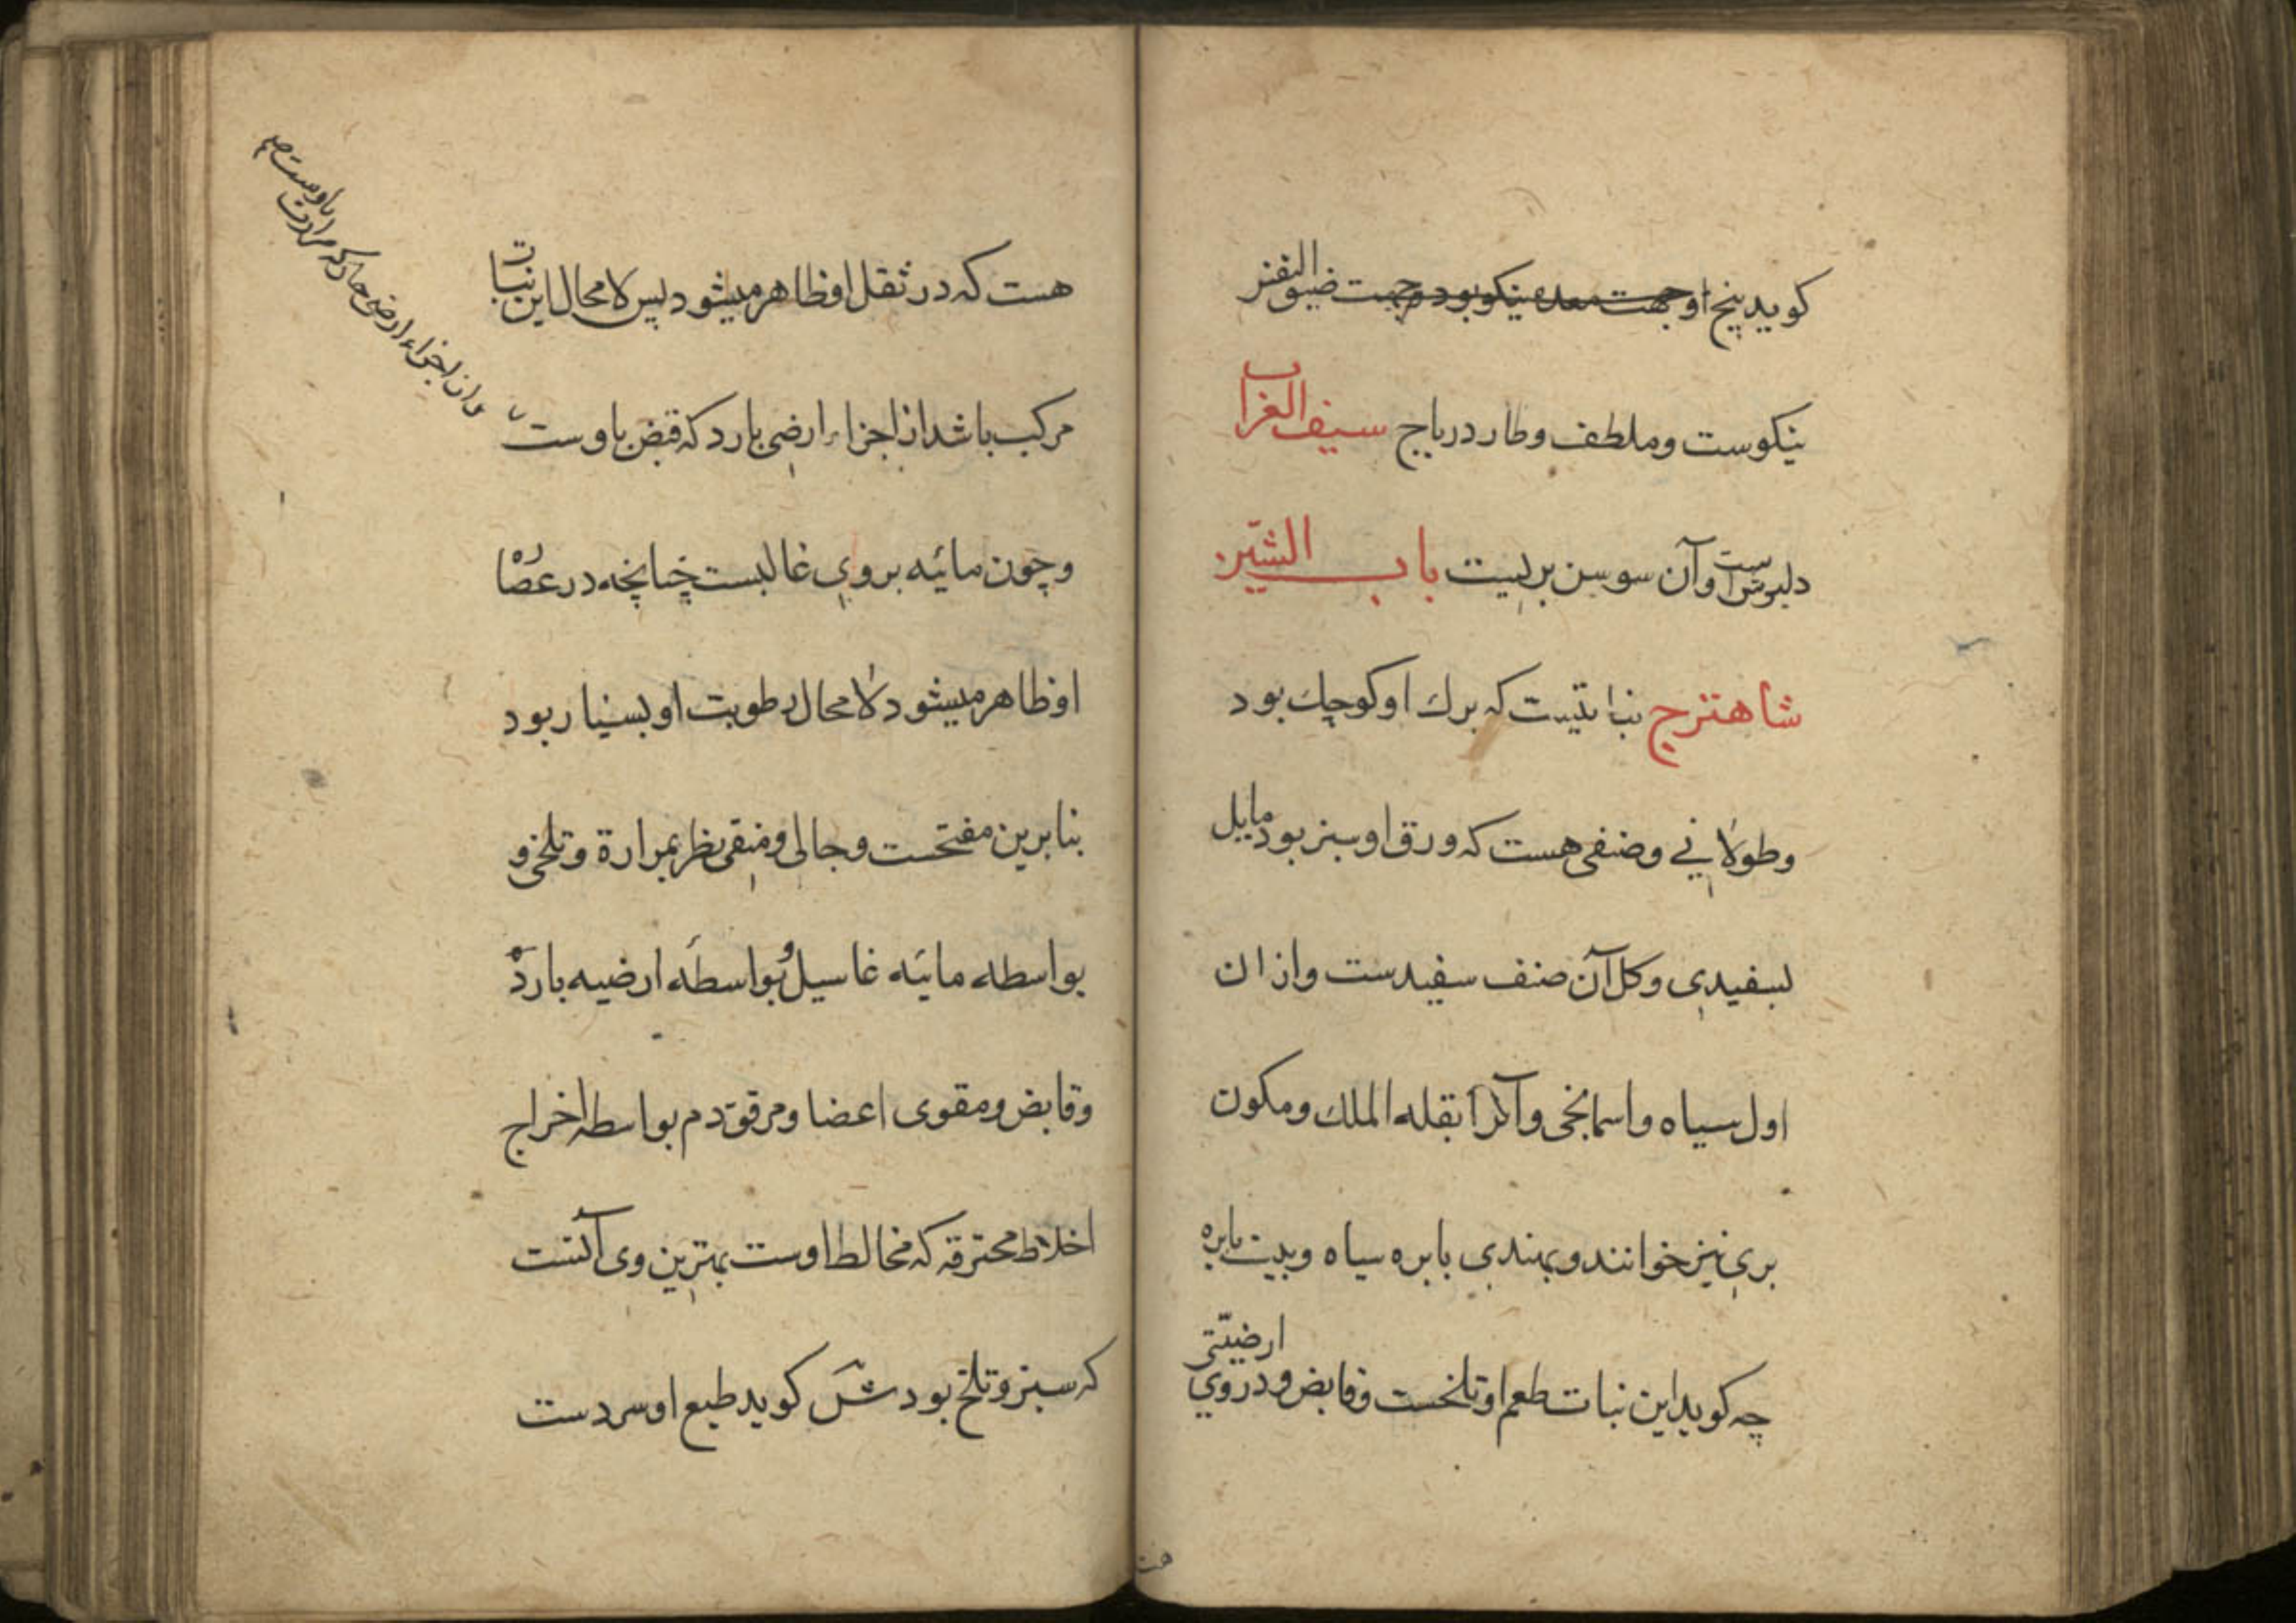 کوید بیخ او جهت معده نیکو بود و جهت ضیق النفس
نیکوست و ملطف و طارد ریاح سیف الغراب
دلبوث است و آن سوسن بریست باب الشین
شاهترج نباتیست که برک او کوچک بود
و طولانی و صنفی هست که ورق او سبز بود مایل
بسفیدی و کل آن صنف سفیدست و از ان
اول سیاه و اسمانجی و آنرا بقله الملک و مکون
بری نیز خوانند و بهندی بابره سیاه و پیت بابره
ارضیتی
چه کوید این نبات طعم او تلخست و قابض و در وی
هست
هست که در ثقل او ظاهر میشود پس لامحال این نبات
مرکب باشد از اجزاء ارضی بارد که قبض باوست
و از اجزاء ارضی حار که مرارت
باوست صح
و چون مائیه بر وی غالبست چنانچه در عصاره
او ظاهر میشود لامحال رطوبت او بسیار بود
بنابرین مفتحست و جالی و منقی نظر بمرارة و تلخی و
بواسطه مائیه غاسیل و بواسطه ارضیه بارده
و قابض و مقوی اعضا و مرقق دم بواسطه اخراج
اخلاط محترقه که مخالط اوست بهترین وی آنست
که سبز و تلخ بود ش کوید طبع او سردست